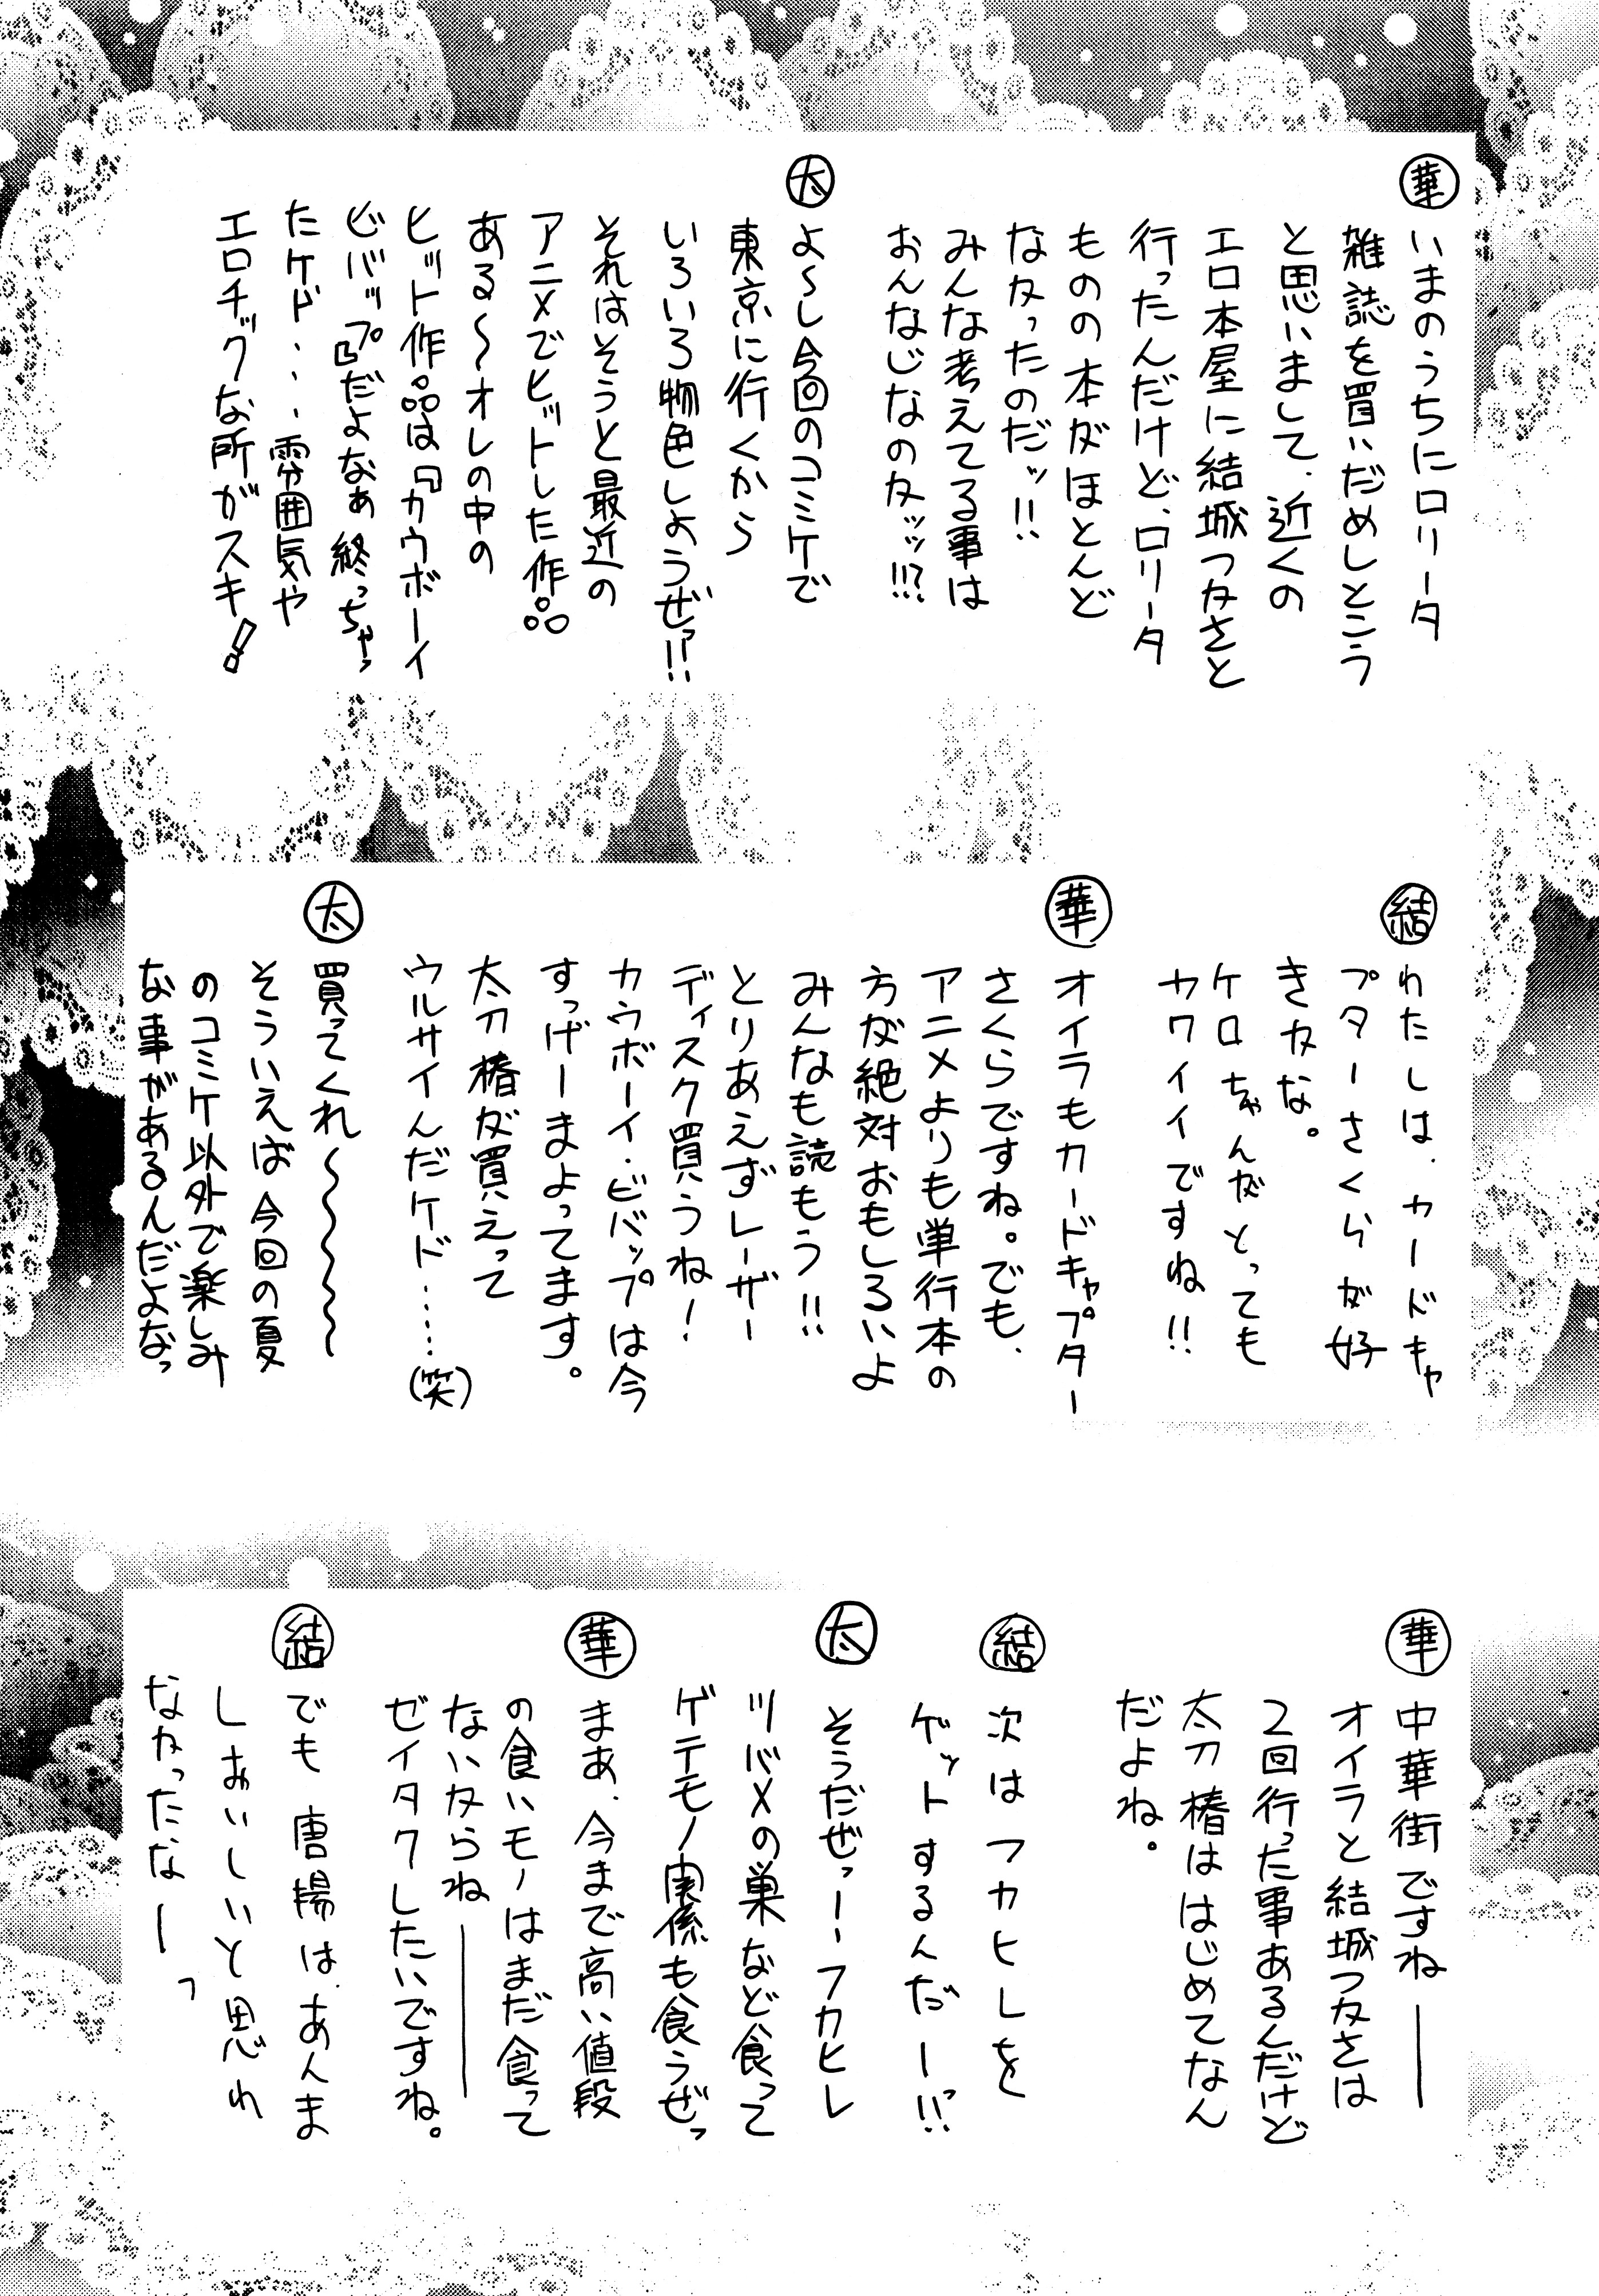 華
いまのうちにロリータ
雑誌を買いだめしとこう
と思いまして、近くの
エロ本屋に結城つかさと
行ったんだけど、ロリータ
ものの本がほとんど
なかったのだッ!!
みんな考えてる事は
おんなじなのカッッ!!?
太
よ〜し今回のコミケで
東京に行くから
いろいろ物色しようぜっ!!
それはそうと最近の
アニメでヒットした作品
ある〜オレの中の
ヒット作品は『カウボーイ
ビバップ』だよなぁ終っちゃっ
たケド・・・雰囲気や
エロチックな所がスキ!
結
わたしは、カードキャ
プターさくらが好
きかな。
ケロちゃんがとっても
カワイイですね!!
華
オイラもカードキャプター
さくらですね。でも、
アニメよりも単行本の
方が絶対おもしろいよ
みんなも読もう!!
とりあえずレーザー
ディスク買うね!
カウボーイ・ビバップは今
すっげーまよってます。
太刀椿が買えって
ウルサイんだケド……(笑)
太
買ってくれ〜〜〜〜
そういえば今回の夏
のコミケ以外で楽しみ
な事があるんだよなっ
華
中華街ですね――
オイラと結城つかさは
2回行った事あるんだけど
太刀椿ははじめてなん
だよね。
結
次はフカヒレを
ゲットするんだーっ!!
太
そうだぜっーフカヒレ
ツバメの巣など食って
ゲテモノ関係も食うぜっ
華
まあ、今まで高い値段
の食いモノはまだ食って
ないからね――
ゼイタクしたいですね。
結
でも唐揚は、あんま
しおいしいと思わ
なかったなーっ